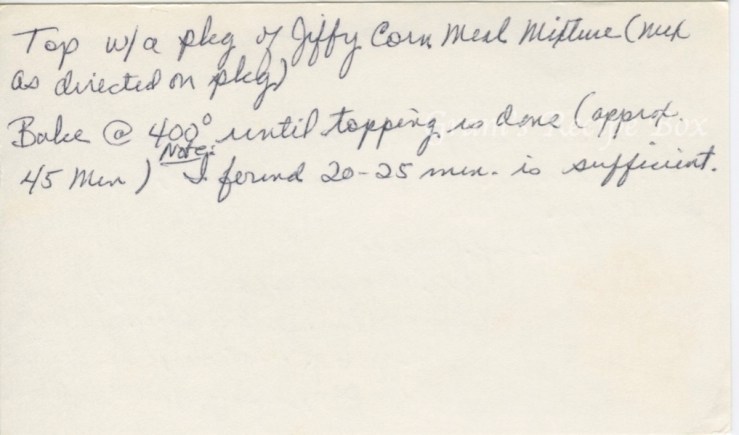 Top w/a pkg of Jiffy Corn Meal Mixture (mix
as directed on pkg)
Bake @ 400° until topping is done (approx.
Gram's Recipe Box
45 Min) Note: I found 20-25 min. is sufficient.